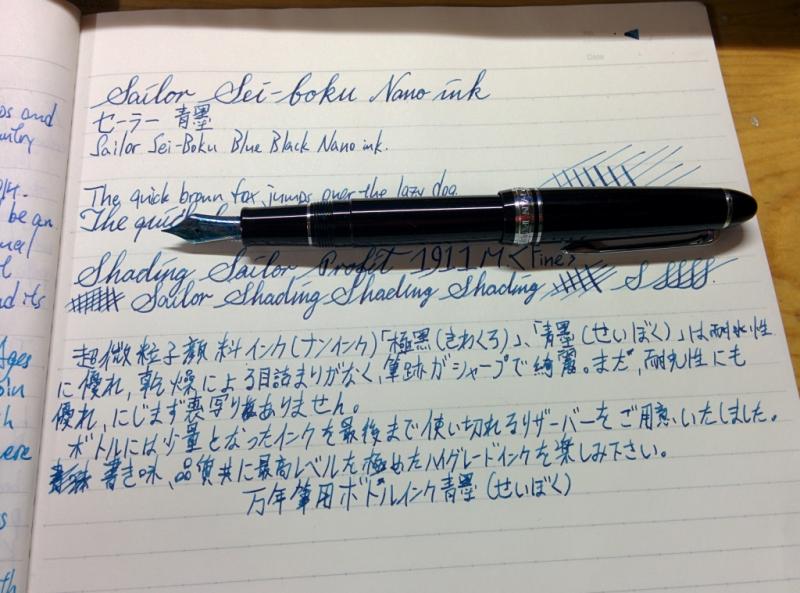 Sailor Sei-boku Nano ink
セーラー 青墨
Sailor Sei-Boku Blue Black Nano ink.
The quick brown fox jumps over the lazy dog
The quick
Shading Sailor Profit 1911 M <Fine>
Sailor Shading Shading Shading S
超微粒子顔料インク(ナンインク)「極黒(きわぐろ)」、「青墨(せいぼく)」は耐水性
に優れ,乾燥による目詰まりがなく,筆跡がシャープで綺麗。まだ,耐光性にも
優れ,にじまず裏写りありません。
ボトルには少量となったインクを最後まで使い切れるリザーバーをご用意いたしました。
書き味、品質共に最高レベルを極めたハイグレードインクを楽しみ下さい。
万年筆用ボトルインク青墨(せいぼく)
Date
ps and
be an
and its
Ages
here